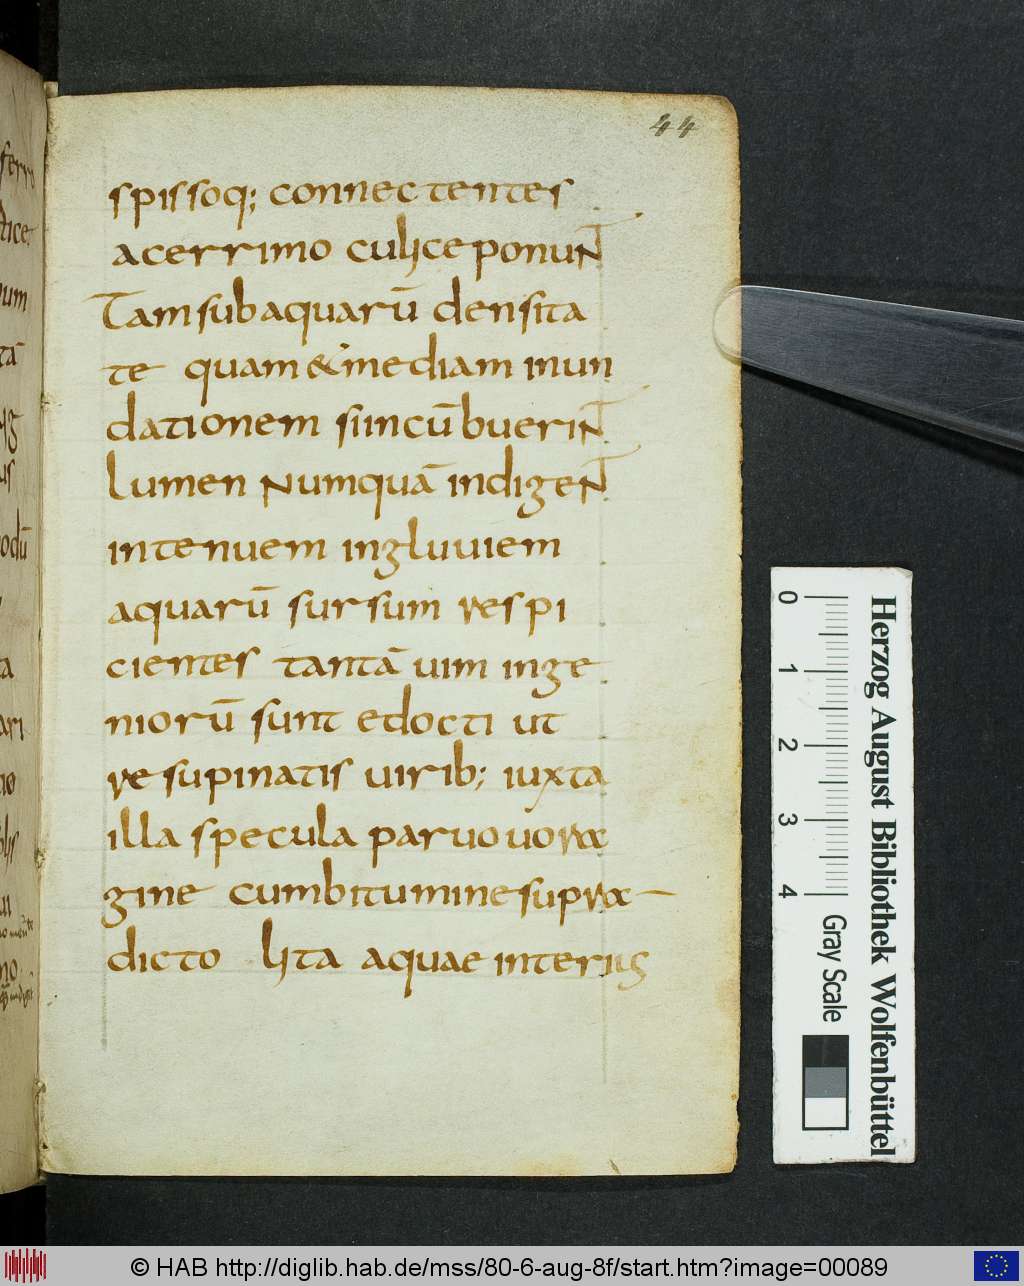 44
spissoq; connectentes
acerrimo culice ponunt
Tam sub aquarū densita
te quam & mediam inun
dationem si incūbuerint
lumen numquā indigent
in tenuem ingluuiem
aquarū sursum respi
cientes tantā uim inge
niorū sunt edocti ut
resupinatis uirib; iuxta
illa specula paruo uora
gine cum bitumine supra
dicto lita aquae interius
ferro
tice
num
tā
us
odū
ta
ari
Herzog August Bibliothek Wolfenbüttel
0 1 2 3 4
Gray Scale
© HAB http://diglib.hab.de/mss/80-6-aug-8f/start.htm?image=00089